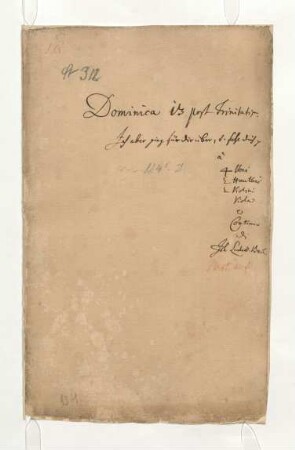 № 312
Dominica 13 post Trinitatis.
Ich aber ging für dir über, u. sahe dich p
à
4 Voci
2 Hautbois
2 Violini
Viola
e
Continuo
di
Joh. Ludw. Bach